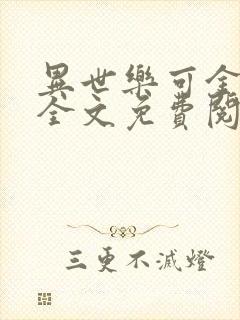 異世樂可全
全文免費閱
三更不滅燈